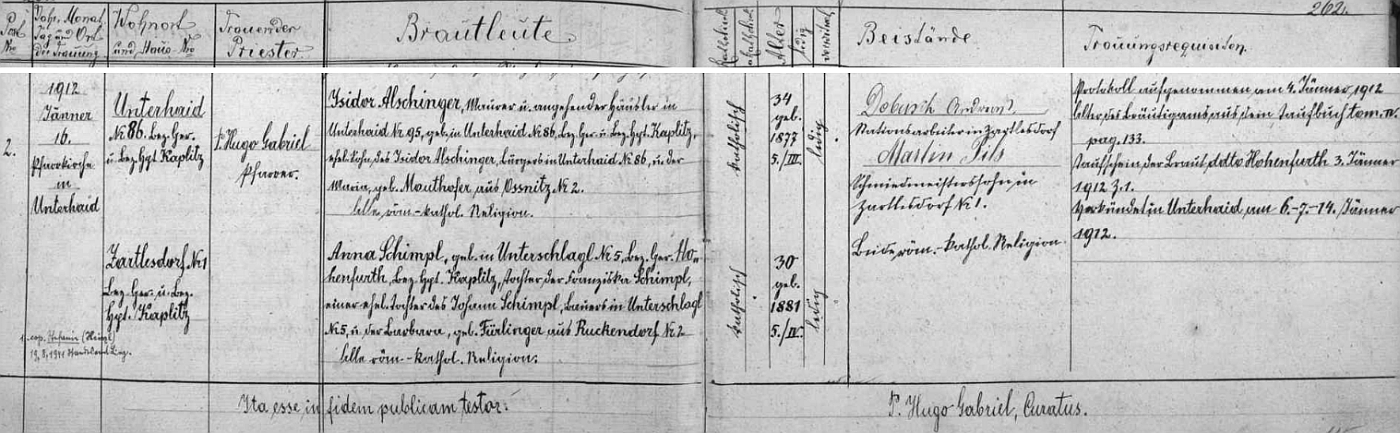 262.
Post No
Jahr, Monat Tag und Ort der Trauung
Wohnort und Haus-No
Trauender Priester
Brautleute
katholisch
akatholisch
Alter
ledig
verwitwet
Beistände
Trauungsrequisiten.
2.
1912
Jänner
16.
Pfarrkirche
in
Unterhaid
Unterhaid
№ 86. Bez. Ger.
u. Bez. Hpt. Kaplitz
P. Hugo Gabriel
Pfarrer.
Isidor Alschinger, Maurer u. angehender Häusler in
Unterhaid № 95, geb. in Unterhaid № 86, Bez. Ger. u. Bez. Hpt. Kaplitz,
ehel. Sohn des Isidor Alschinger, Bürgers in Unterhaid № 86, u. der
Maria, geb. Mauthofer aus Ossnitz № 2.
Alle röm.-kathol. Religion.
katholisch
34
geb.
1877
5./III.
ledig
Dobusch Andreas
Stationsarbeiter in Zartlesdorf
Martin Pils
Schmiedmeisterssohn in
Zartlesdorf № 1.
Beide röm.-kathol. Religion.
Protokoll aufgenommen am 4. Jänner, 1912
Alter des Bräutigams aus dem Taufbuch tom. IV.
pag. 133.
Taufschein der Braut, ddto Hohenfurth 3. Jänner
1912 Z. 1.
Verkündet in Unterhaid am 6.-7.-14. Jänner
1912.
Zartlesdorf № 1
Bez. Ger. u. Bez.
Hpt. Kaplitz
Anna Schimpl, geb. in Unterschlagl № 5, Bez. Ger. Ho-
henfurth, Bez. Hpt. Kaplitz, Tochter der Franziska Schimpl,
einer ehel. Tochter des Johann Schimpl, Bauers in Unterschlagl
№ 5, u. der Barbara, geb. Fürlinger aus Ruckendorf № 2
Alle röm.-kathol. Religion.
katholisch
30
geb.
1881
5./IV.
ledig
cop. Stefanie
19.8.1941
Ita esse in fidem publicam testor:
P. Hugo Gabriel, Curatus.